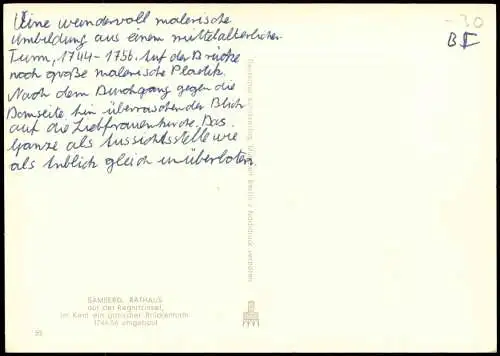 Eine wundervoll malerische
Umbildung aus einem mittelalterlichen
Turm, 1744-1756. Auf der Brücke
noch große malerische Plastik.
Nach dem Durchgang gegen die
Domseite hin überraschender Blick
auf die Liebfrauenkirche. Das
Ganze als Aussichtsstelle wie
als Anblick gleich unüberboten.
-.30
B
BAMBERG, RATHAUS
auf der Regnitzinsel,
im Kern ein gotischer Brückenturm
1744/56 umgebaut